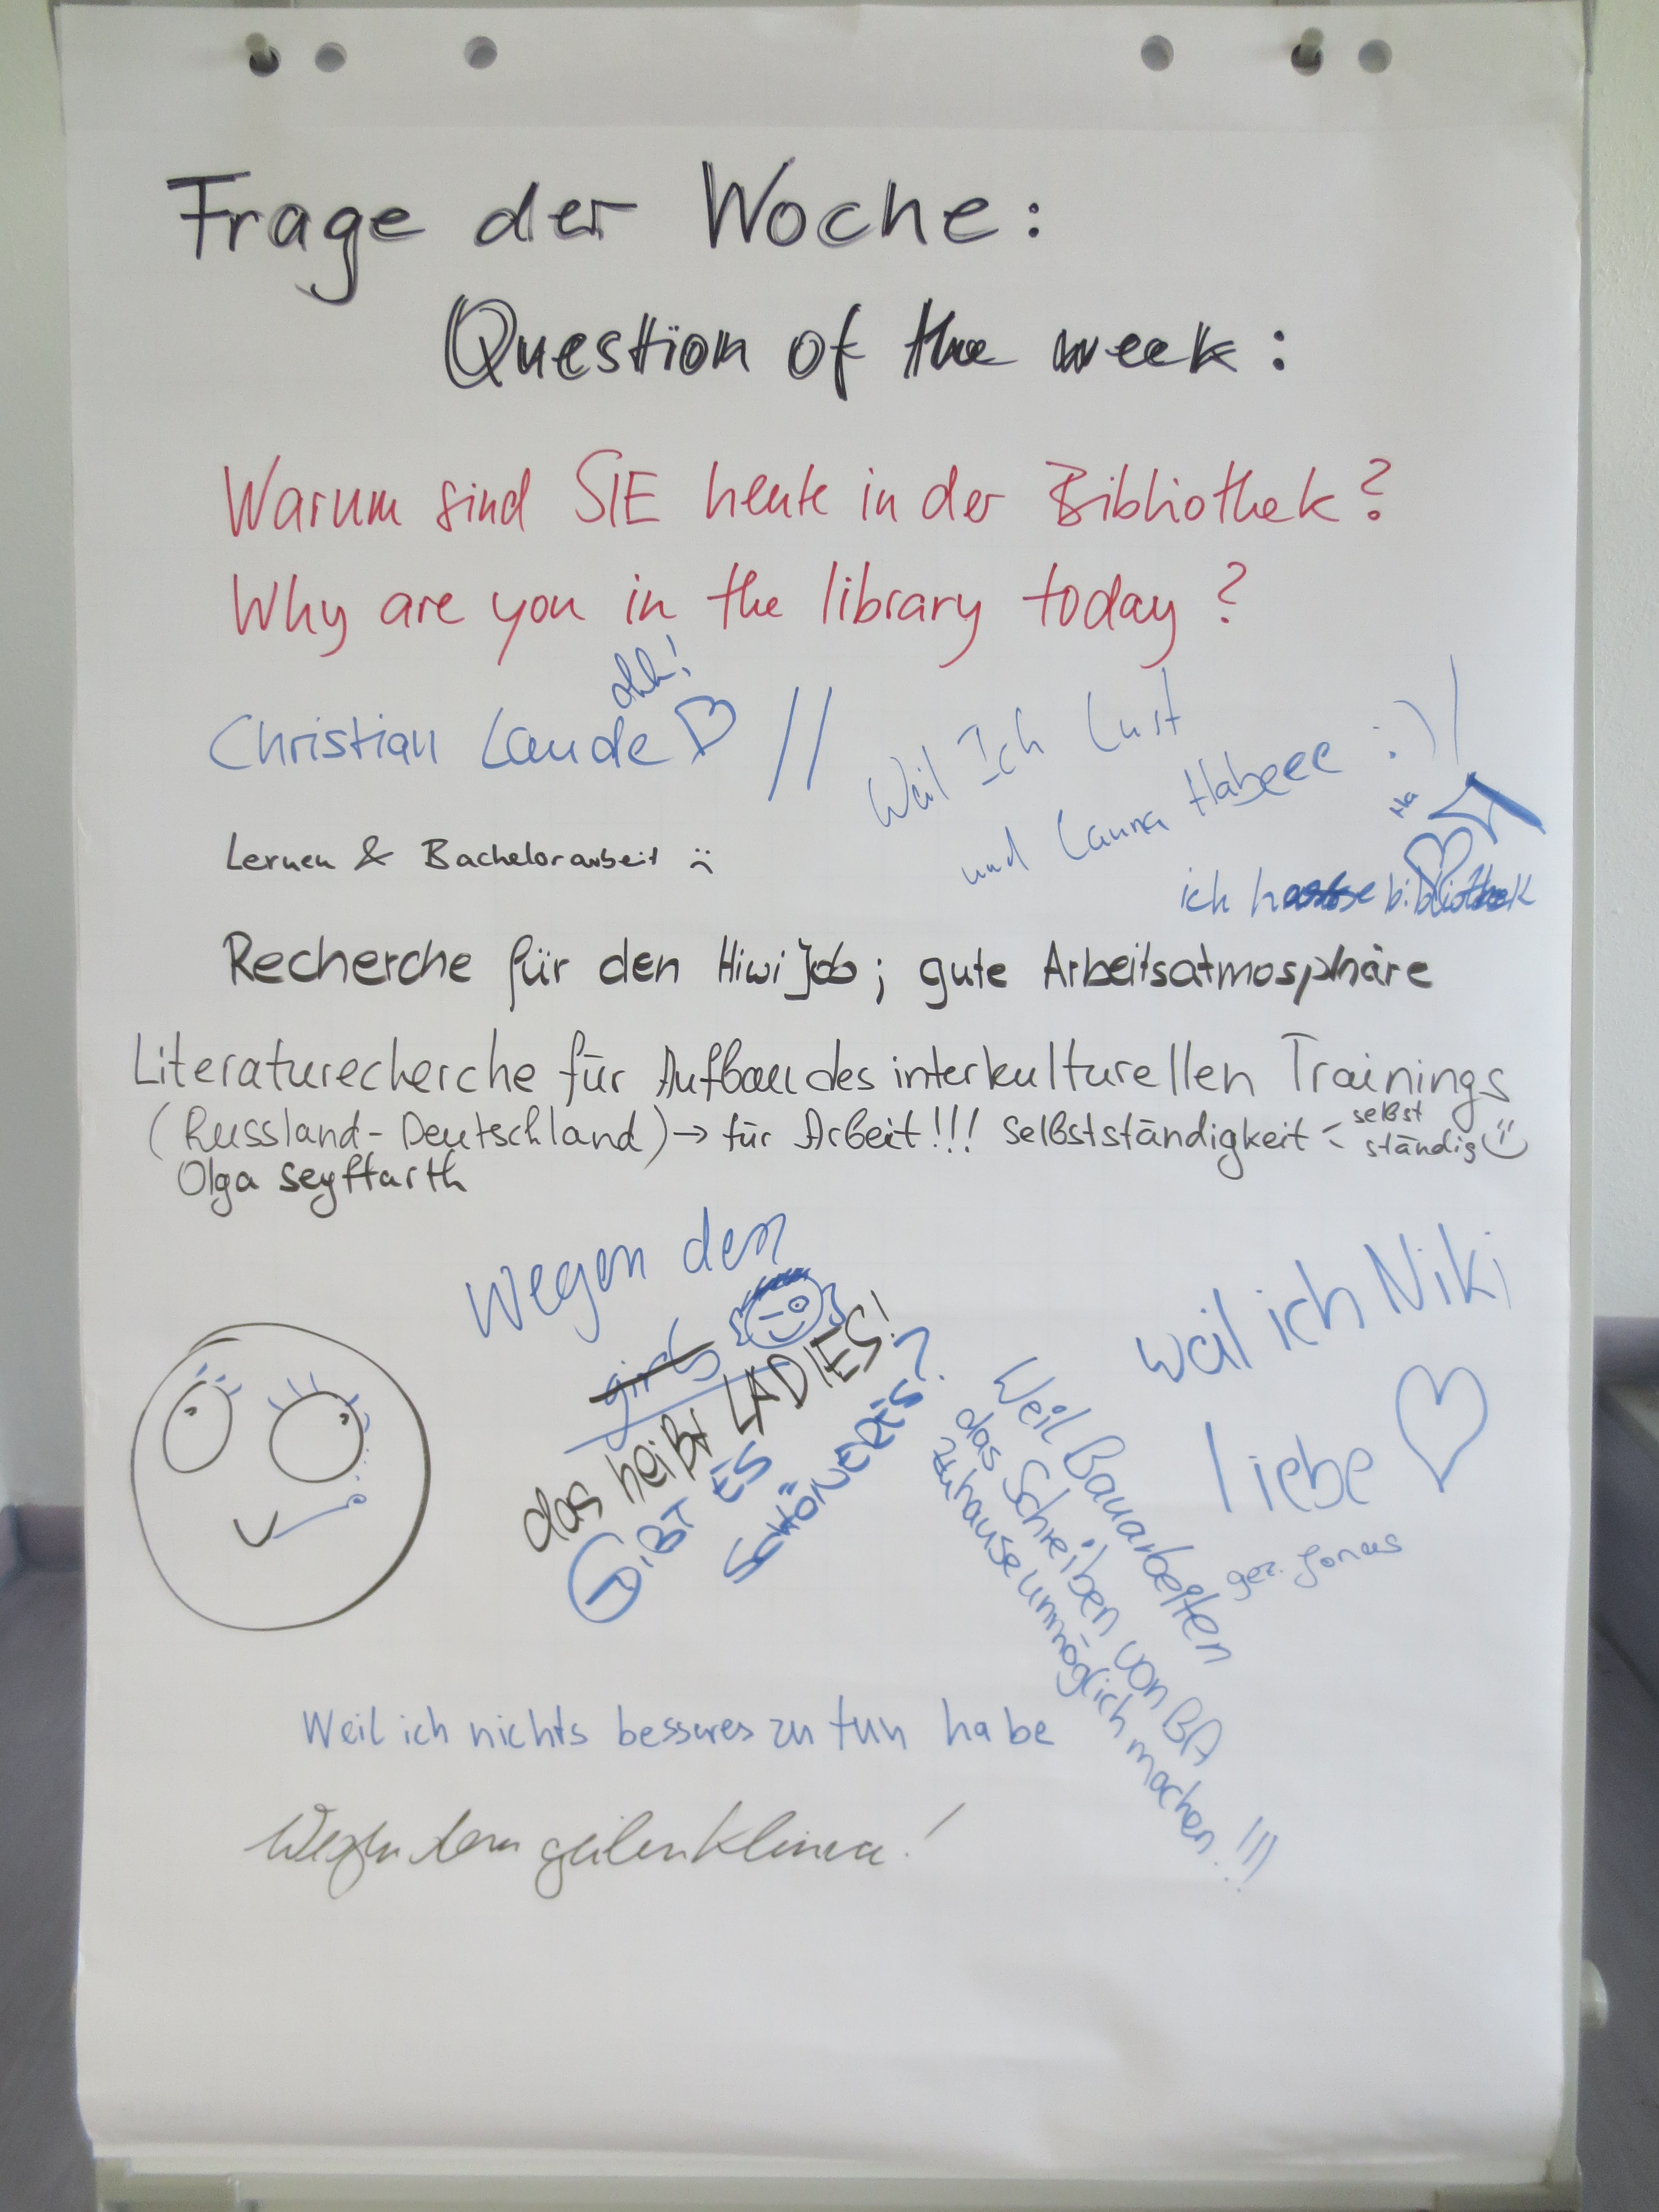 Frage der Woche:
Question of the week:
Warum sind SIE heute in der Bibliothek?
Why are you in the library today?
ohh!
Christian Laude //
Weil Ich Lust
und Launa Habeee :)
Lernen & Bachelorarbeit :(
ich hasse bibliothek
Recherche für den Hiwi Job; gute Arbeitsatmosphäre
Literaturecherche für Aufbau des interkulturellen Trainings
(Russland-Deutschland) → für Arbeit!!! Selbstständigkeit - selbst
ständig
Olga Seyffarth
wegen den
girls
das heißt LADIES!
GIBT ES
SCHÖNERES?
weil ich Niki
liebe ♡
gez. Jonas
Weil Bauarbeiten
das Schreiben von BA
zuhause unmöglich machen!!!
Weil ich nichts besseres zu tun habe
Wegen dem geilen Klima!